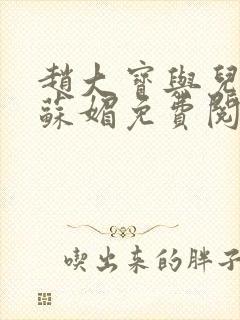 趙大寶與兒
蘇媚免費閱
喫出來的胖子